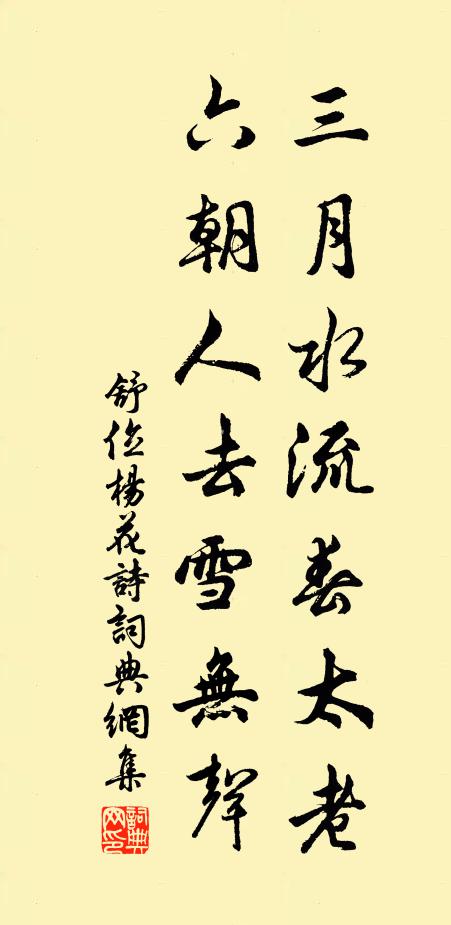 三月水流春太老
六朝人去雪無聲
舒位楊花詩詞典網集
詞典网印